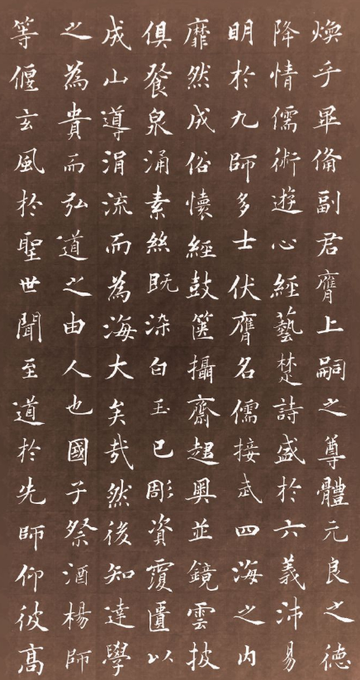 煥乎畢俻副君膺上嗣之尊體元良之德
降情儒術遊心經藝楚詩盛於六義沛易
明於九師多士伏膺名儒接武四海之内
靡然成俗懷經鼓篋攝齋趍奧並鏡雲披
俱餐泉涌素絲既染白玉已彫資覆匱以
成山導涓流而為海大矣哉然後知達學
之為貴而弘道之由人也國子祭酒楊師
等偃玄風於聖世聞至道於先師仰彼高